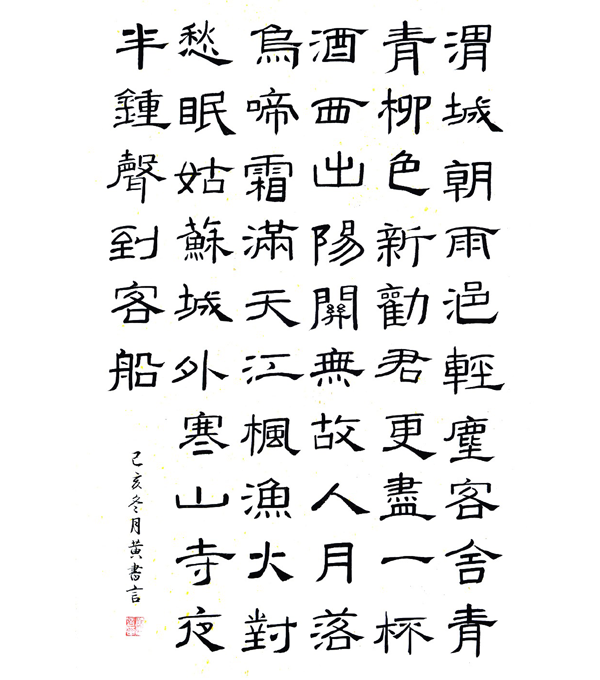 渭城朝雨浥輕塵客舍青
青柳色新勸君更盡一杯
酒西出陽關無故人月落
烏啼霜滿天江楓漁火對
愁眠姑蘇城外寒山寺夜
半鍾聲到客船
己亥冬月黃書言